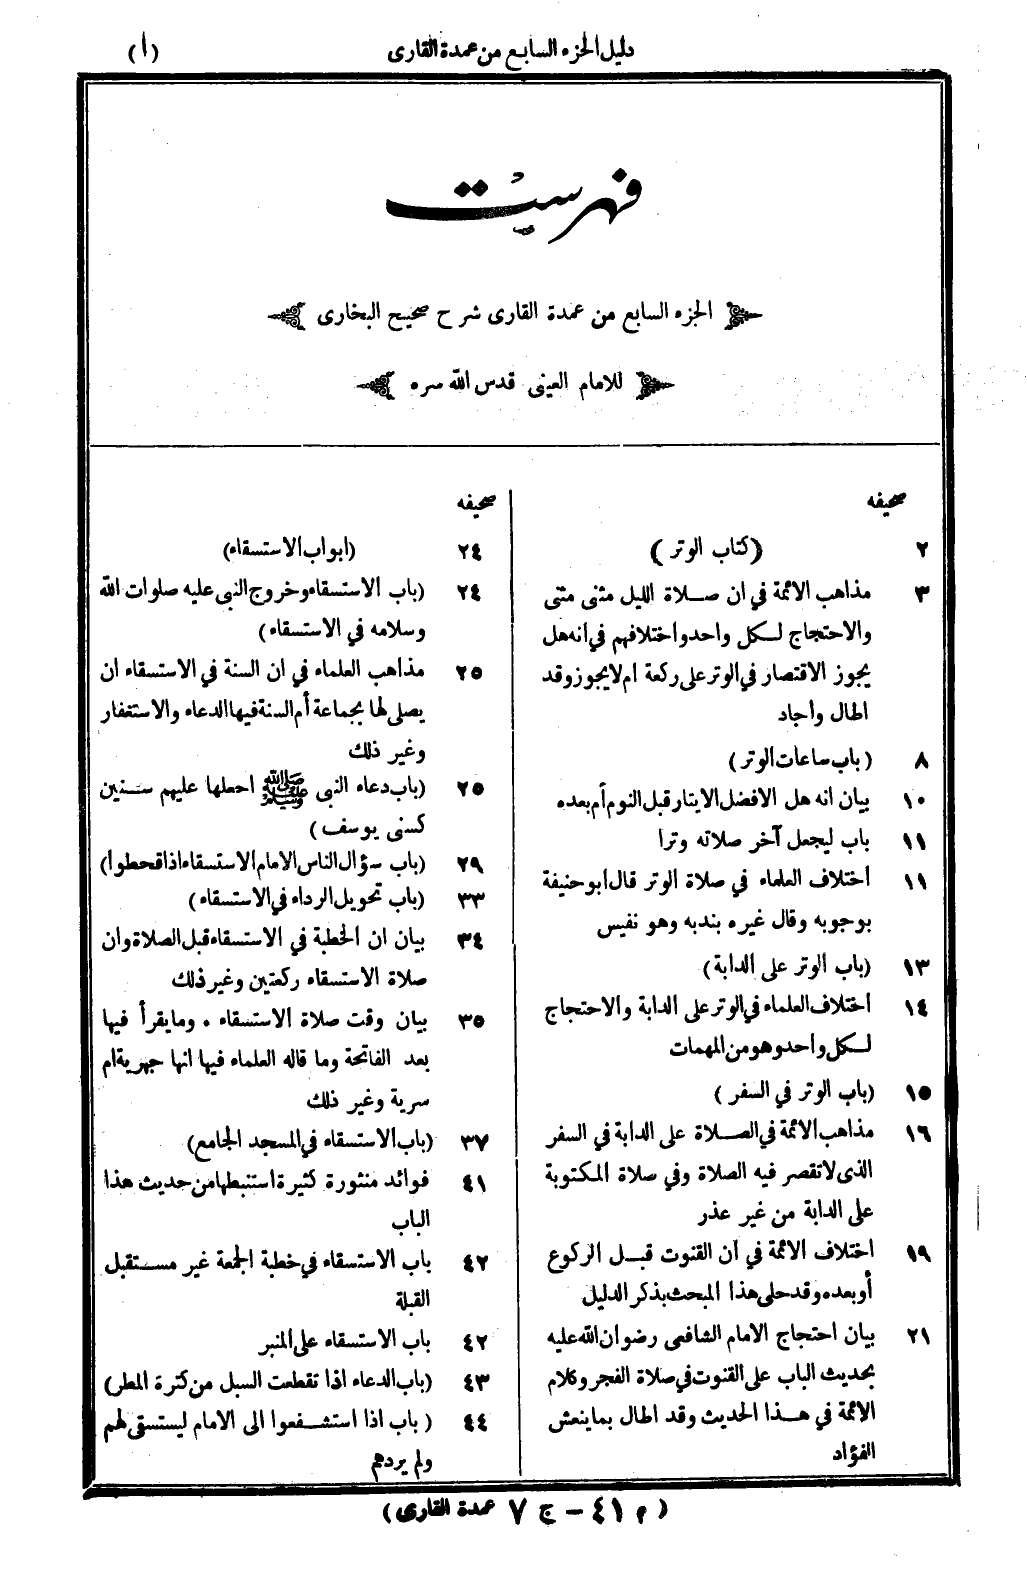 دليل الجزء السابع من عمدة القارى
(أ)
فهرست
الجزء السابع من عمدة القارى شرح صحيح البخارى
للامام العينى قدس الله سره
صحيفه
٢ (كتاب الوتر)
٣ مذاهب الائمة في ان صلاة الليل مثنى مثنى
والاحتجاج لكل واحد واختلافهم في انه هل
يجوز الاقتصار في الوتر على ركعة ام لا يجوز وقد
اطال وأجاد
٨ (باب ساعات الوتر)
١٠ بيان انه هل الافضل الايتار قبل النوم أم بعده
١١ باب ليجعل آخر صلاته وترا
١١ اختلاف العلماء في صلاة الوتر قال ابو حنيفة
بوجوبه وقال غيره بندبه وهو نفيس
١٣ (باب الوتر على الدابة)
١٤ اختلاف العلماء في الوتر على الدابة والاحتجاج
لكل واحد وهو من المهمات
١٥ (باب الوتر في السفر)
١٦ مذاهب الائمة في الصلاة على الدابة في السفر
الذى لا تقصر فيه الصلاة وفي صلاة المكتوبة
على الدابة من غير عذر
١٩ اختلاف الائمة في أن القنوت قبل الركوع
أو بعده وقد حلى هذا المبحث بذكر الدليل
٢١ بيان احتجاج الامام الشافعى رضوان الله عليه
بحديث الباب على القنوت في صلاة الفجر وكلام
الائمة في هذا الحديث وقد اطال بما ينعش
الفؤاد
صحيفه
٢٤ (ابواب الاستسقاء)
٢٤ (باب الاستسقاء وخروج النبى عليه صلوات الله
وسلامه في الاستسقاء)
٢٥ مذاهب العلماء في ان السنة في الاستسقاء ان
يصلى لها بجماعة أم السنة فيها الدعاء والاستغفار
وغير ذلك
٢٥ (باب دعاء النبى ﷺ اجعلها عليهم سنين
كسنى يوسف)
٢٩ (باب سؤال الناس الامام الاستسقاء اذا قحطوا)
٣٣ (باب تحويل الرداء في الاستسقاء)
٣٤ بيان ان الخطبة في الاستسقاء قبل الصلاة وان
صلاة الاستسقاء ركعتين وغير ذلك
٣٥ بيان وقت صلاة الاستسقاء . وما يقرأ فيها
بعد الفاتحة وما قاله العلماء فيها انها جهرية ام
سرية وغير ذلك
٣٧ (باب الاستسقاء في المسجد الجامع)
٤١ فوائد منثورة كثيرة استنبطها من حديث هذا
الباب
٤٢ باب الاستسقاء في خطبة الجمعة غير مستقبل
القبلة
٤٢ باب الاستسقاء على المنبر
٤٣ (باب الدعاء اذا تقطعت السبل من كثرة المطر)
٤٤ (باب اذا استشفعوا الى الامام ليستسقى لهم
ولم يردهم
(م ٤١ – ج ٧ عمدة القارى)